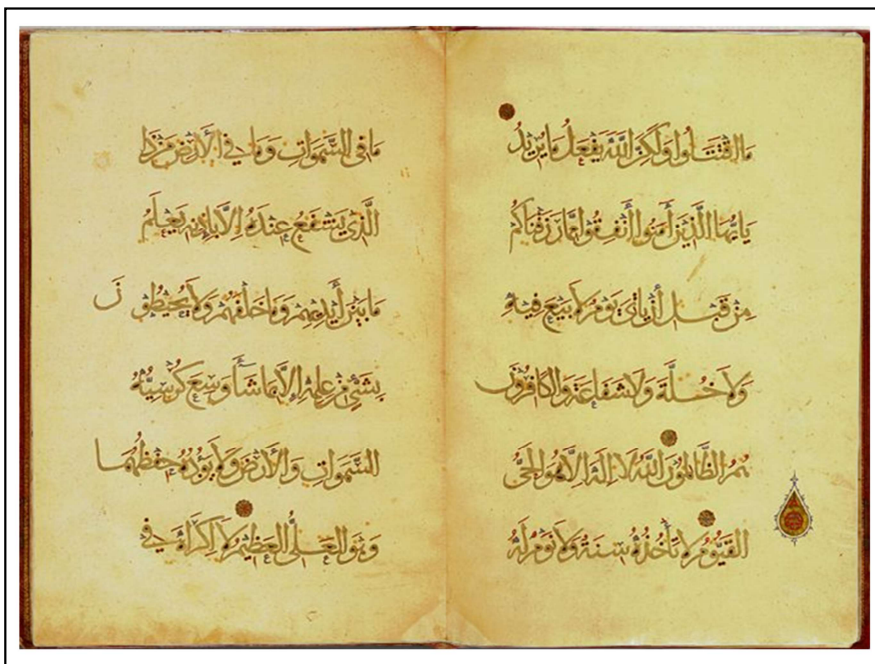 ما اقتتلوا ولكن الله يفعل ما يريد
يايها الذين آمنوا أنفقوا مما رزقناكم
من قبل أن ياتي يوم لا بيع فيه
ولا خلة ولا شفاعة والكافرون
هم الظالمون الله لا إله إلا هو الحي
القيوم لا تأخذه سنة ولا نوم له
ما في السموات وما في الأرض من ذا
الذي يشفع عنده إلا بإذنه يعلم
ما بين أيديهم وما خلفهم ولا يحيطون
بشيء من علمه إلا بما شاء وسع كرسيه
السموات والأرض ولا يؤده حفظهما
وهو العلي العظيم لا إكراه في